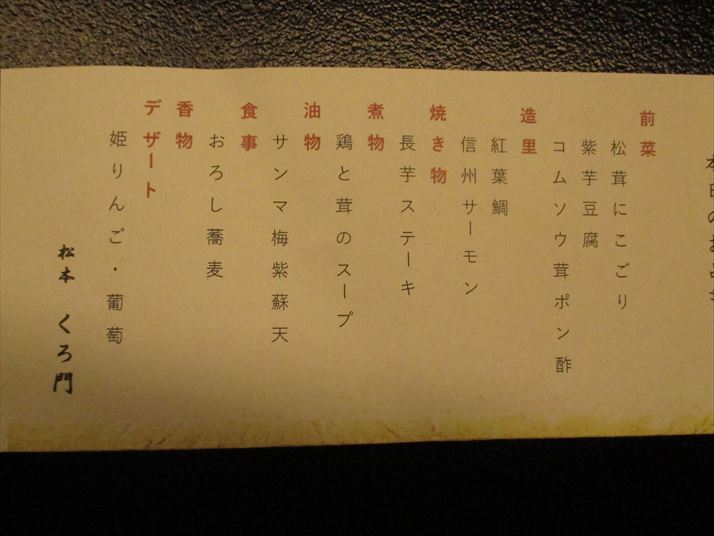 前菜
松茸にこごり
紫芋豆腐
コムソウ茸ポン酢
造里
紅葉鯛
信州サーモン
焼き物
長芋ステーキ
煮物
鶏と茸のスープ
油物
サンマ梅紫蘇天
食事
おろし蕎麦
香物
デザート
姫りんご・葡萄
松本 くろ門